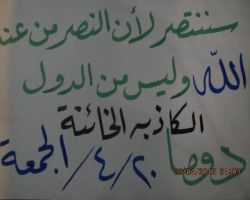 سننتصر لأن النصر من عند
الله وليس من الدول
الكاذبه الخائنة
دوما ٢٠/٤/ الجمعة